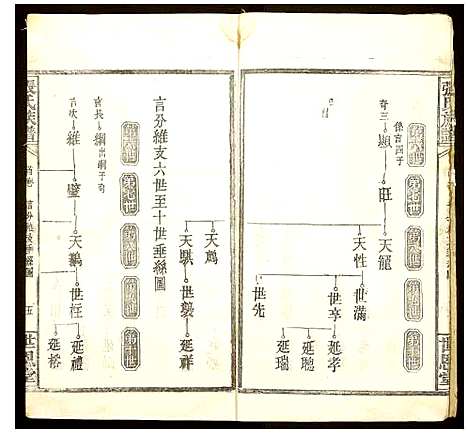 張氏族譜
第六世
第七世
第八世
第九世
第十世
奇三
顯
旺
天龍
天性
世滿
世亭
世先
延孝
延聰
延瑞
天爲
天騏
世
延祥
言分維支六世至十世垂絲圖
第六世
第七世
第八世
第九世
第十世
言長
綱
言次
維
璧
天鵬
世在
延禮
延榕
張氏族譜
五
世恩堂
世恩堂